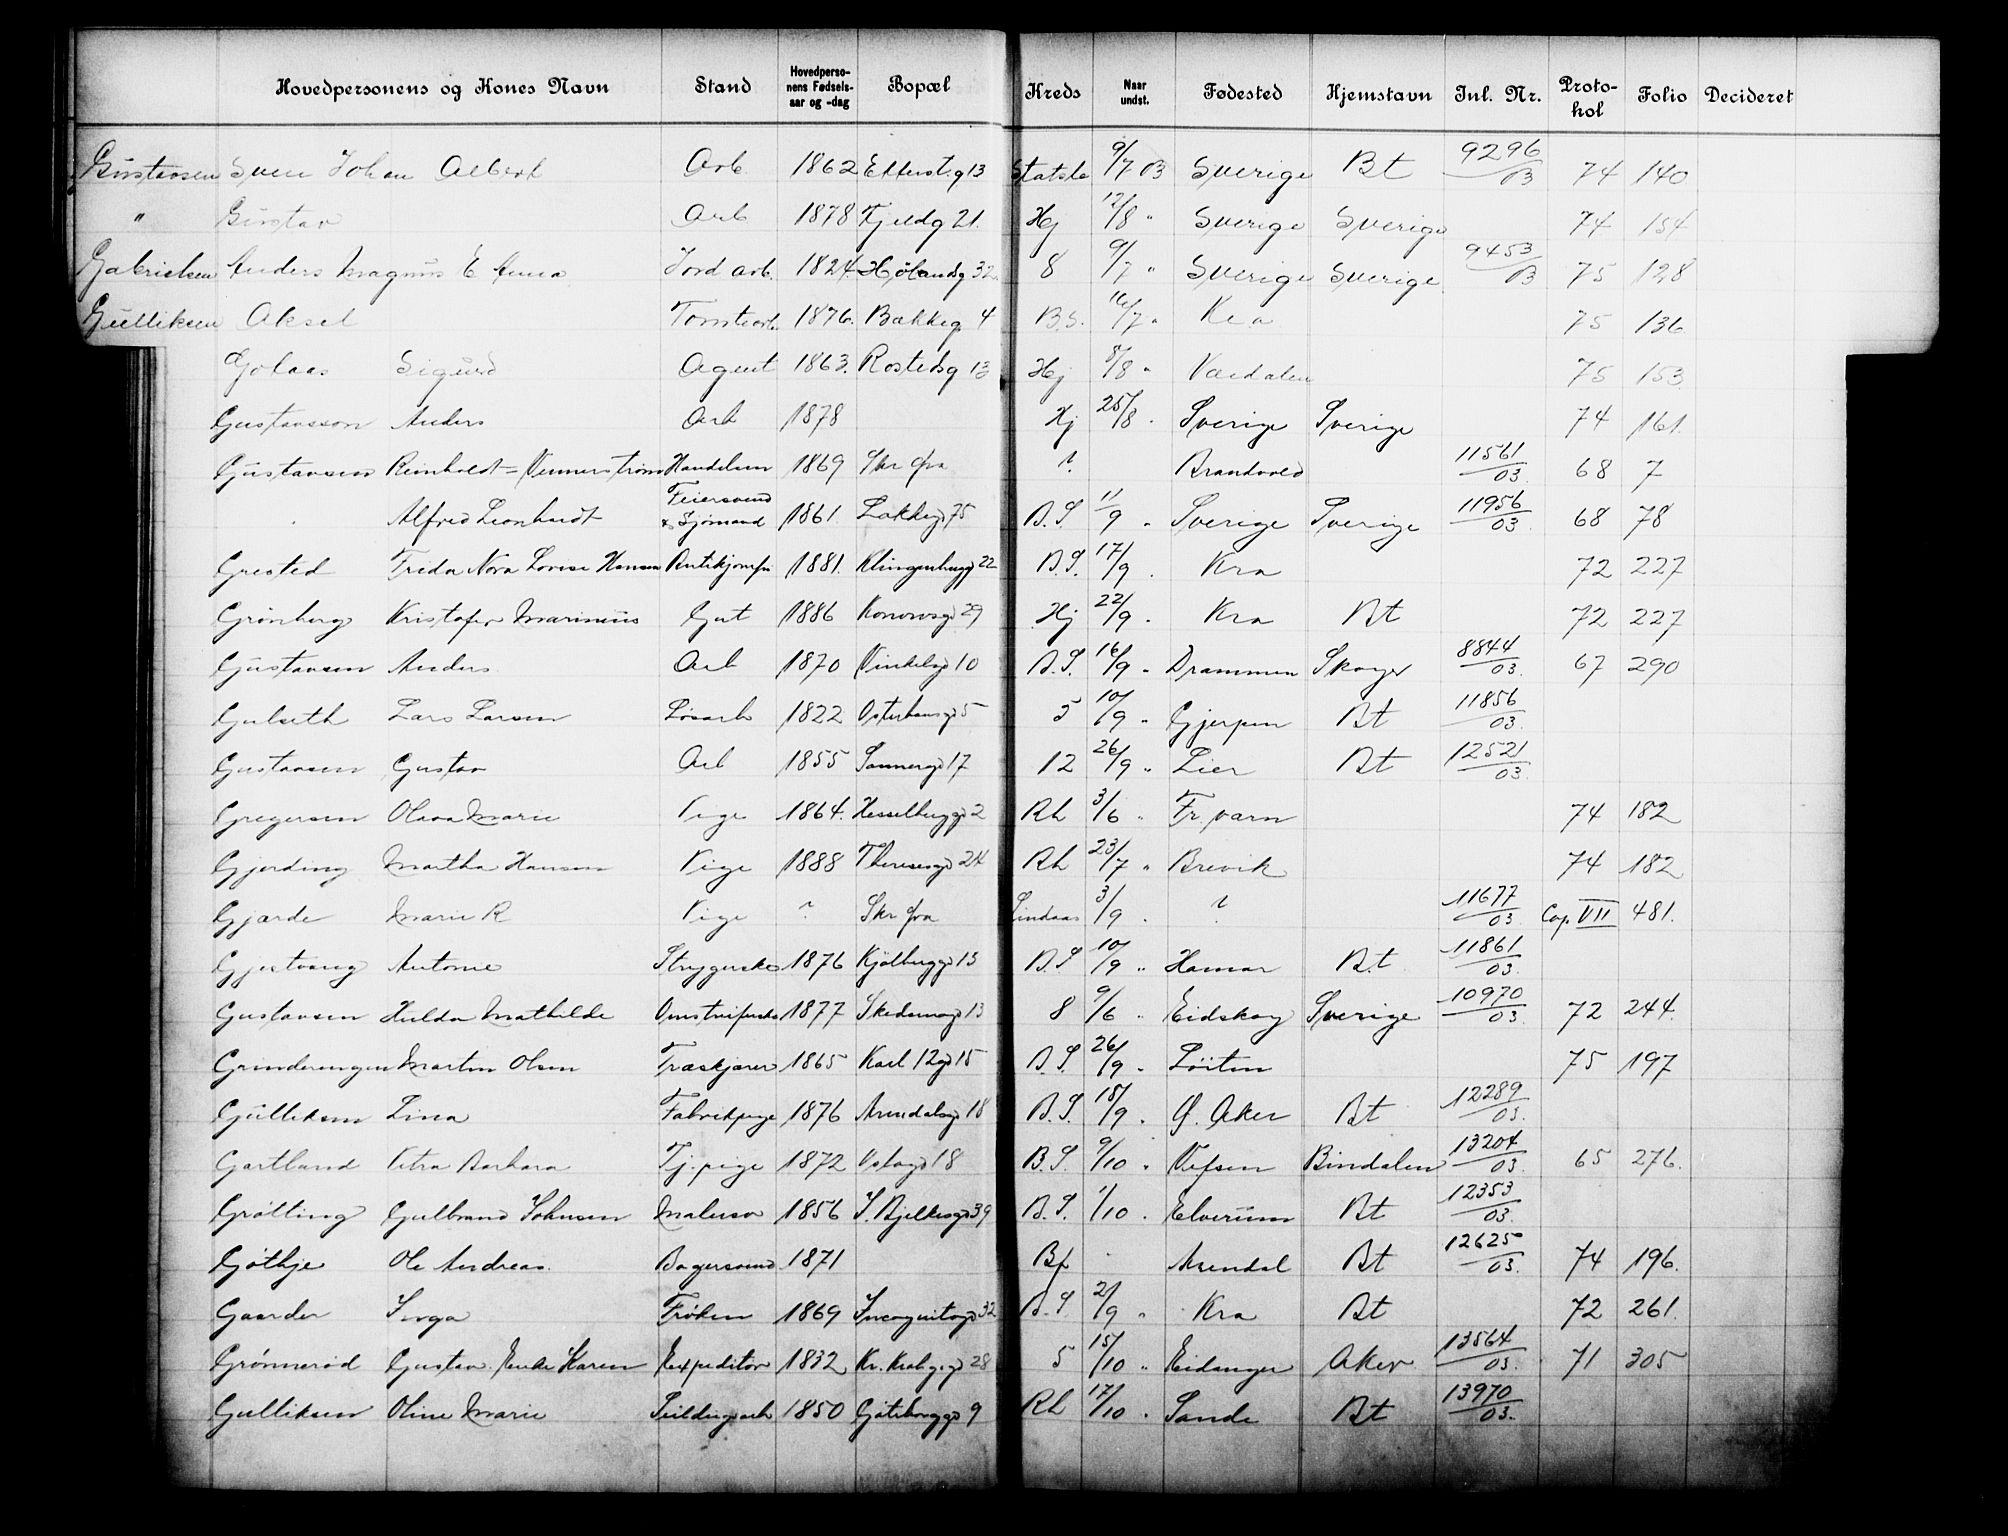 Hovedpersonens og Kones Navn Stand Hovedpersonens Fødselsaar og -dag Bopæl Kreds Naar undst. Fødested Hjemstavn Inl. Nr. Protokol Folio Decideret
Gustavsen Sven Johan Albert Arb. 1862 Etterstg 13 9/7 03 Sverige Bt 9296/03 74 140
" Gustav Arb 1878 Fjeldg 21. Hj 12/8 " Sverige Sverige 74 154
Gabrielsen Anders Magnus E Anna Jord arb. 1824 Hølandsg 32 8 9/7 " Sverige Sverige 9453/03 75 128
Gulliksen Aksel Tomtearb. 1876. Bakkeg 4 B.S. 16/7 " Kra 75 136
Golaas Sigurd Agent 1863. Rostedsg 13 Hj 8/8 " Værdalen 75 153
Gustavsson Anders Arb 1878 Hj 25/8 " Sverige Sverige 74 161.
Gustavsen Reinholdt = Vennerstrøm Handelsm 1869 Skr fra ? Brandvold 11561/03 68 7
" Alfred Leonhardt Feiersvend & Sjømand 1861. Lakkeg 75 B.S. 11/9 " Sverige Sverige 11956/03 68 78
Grested Frida Nora Lovise Hansen Butikjomfr 1881. Klingenbergg 22 B.S. 17/9 " Kra 72 227
Grønberg Kristofer Marinius Gut 1886 Konowsg 29 Hj 22/9 " Kra Bt 72 227
Gustavsen Anders Arb 1870 Vinkelg 10 B.S. 16/9 " Drammen Skoger 8844/03 67 290
Gulseth Lars Larsen Løsarb 1822 Osterhausg 5 5 10/9 " Gjerpen Bt 11856/03.
Gustavsen Gustav Arb 1855 Sannerg 17 12 26/9 " Lier Bt 12521/03.
Gregersen Olava Marie Pige 1864. Hesselbergg 2 Rh 3/6 " Fr. varn 74 182
Gjerding Martha Hansen Pige 1888 Theresesg 24 Rh 23/7 " Brevik 74 182
Gjærde Marie R Pige ? Skr fra Lindaas 3/9 " ? 11677/03 Cop. VII 481.
Gjestvang Antonie Strygerske 1876 Kjølbergg 13 B.S 10/9 " Hamar B.t. 11861/03.
Gustavsen Hulda Mathilde 1877 Skedsmog 13 8 9/6 " Eidskog Sverige 10970/03. 72 244.
Grinderengen Martin Olsen Træskjærer 1865 Karl 12g 15 B.S. 26/9 " Løiten 75 197
Gulliksen Lina Fabrikpige 1876 Arendalsg 18 B.S. 18/9 " Ø. Aker Bt 12289/03.
Gartland Petra Barbara Tj. pige 1872 18 B.S. 9/10 " Vefsen Bindalen 13204/03 65 276.
Grøtting Gulbrand Johnsen Malersv 1856 J. Bjelkesg 39 B.S. 1/10 " Elverum Bt 12353/03.
Gøthje Ole Andreas Bagersvend 1871 Bf " Arendal Bt 12625/03. 74 196.
Gaarder Inga Frøken 1869 Incognitog 32 B.S. 2/9 " Kra Bt 72 261.
Grønnerød Gustav. Enke Karen Expeditør 1832 Kr. Krohgsg 28 5 15/10 " Eidanger Aker 13564/03. 71 305
Gulliksen Oline Marie 1850 Gøteborgg 9 Rh 17/10 " Sande Bt 13970/03.